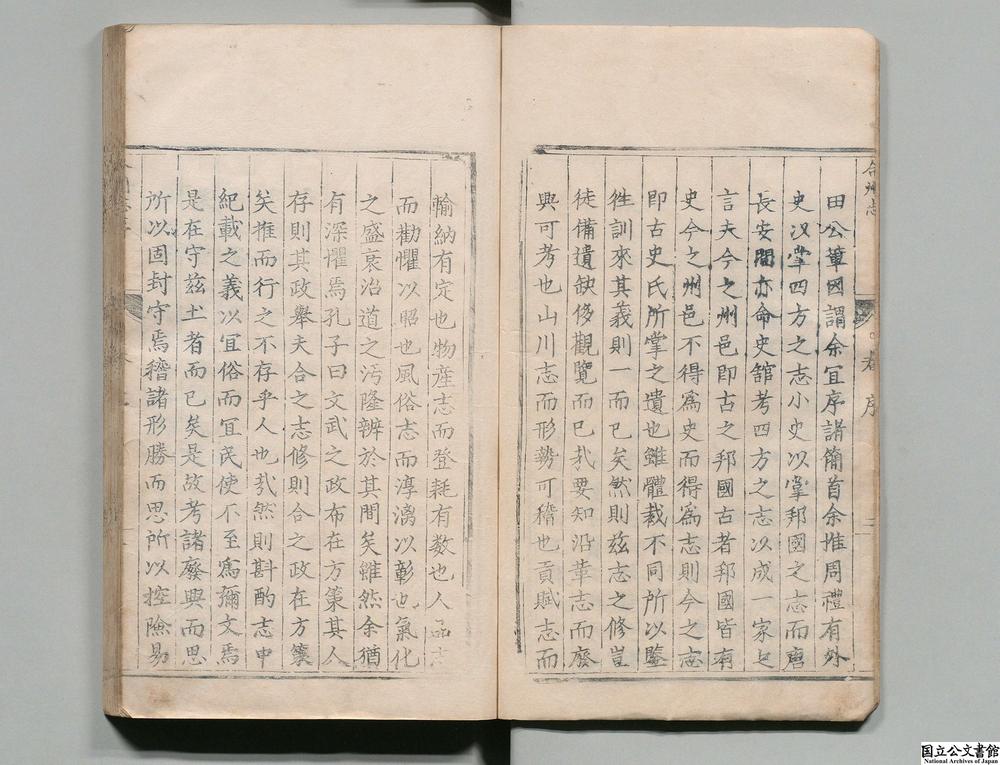 合州志
序
田公葷因謂余宜序諸簡首余惟周禮有外
史汉掌四方之志小史以掌邦國之志而唐
長安間亦命史舘考四方之志以成一家之
言夫今之州邑即古之邦國古者邦國皆有
史今之州邑不得為史而得為志則今之志
即古史氏所掌之遺也雖體裁不同所以鑒
徃訓來其義則一而已矣然則兹志之修豈
徒備遺缺侈觀覽而已㢤要知沿革志而廢
興可考也山川志而形勢可稽也貢賦志而
輸納有定也物産志而登耗有数也人品志
而勸懼以昭也風俗志而淳漓以彰也氣化
之盛衰治道之汚隆辨於其間矣雖然余猶
有深懼焉孔子曰文武之政布在方策其人
存則其政舉夫合之志修則合之政在方策
矣推而行之不存乎人也㢤然則斟酌志中
紀載之義以宜俗而宜民使不至為彌文焉
是在守兹土者而已矣是故考諸廢興而思
所以固封守焉稽諸形勝而思所以控險易
国立公文書館
National Archives of Japan